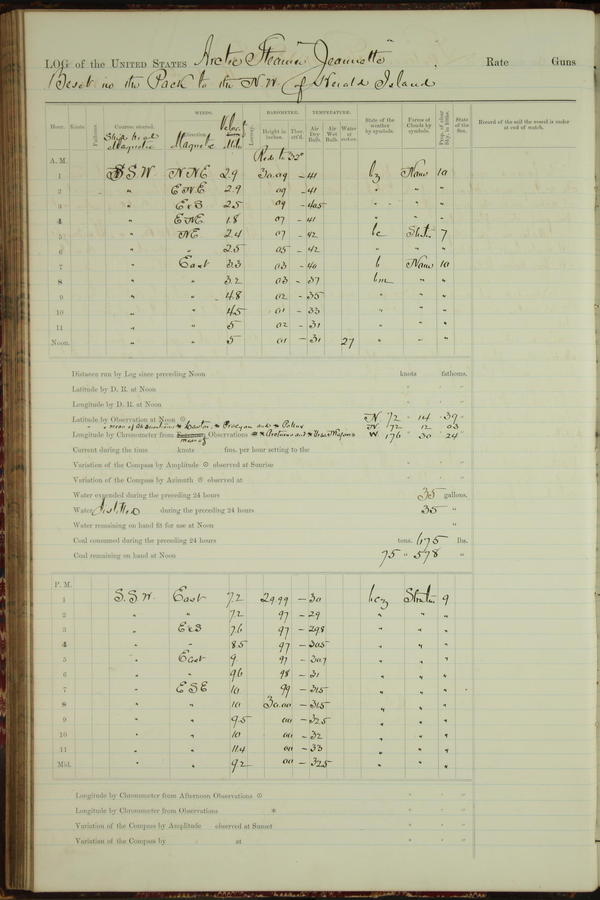 LOG of the UNITED STATES Arctic Steamer "Jeannette" Rate Guns
Beset in the Pack to the N.W. of Herald Island
Hour. Knots. Fathoms. Courses steered. WINDS. Leeway. BAROMETER. TEMPERATURE. State of the weather by symbols. Forms of Clouds by symbols. State of the Sea. Record of the sail the vessel is under at end of watch.
Ship's Head Magnetic Direction Magnetic Veloc'y Miles Height in inches. Ther. att'd. Air Dry Bulb. Air Wet Bulb. Water at surface.
A. M. Red. to 32°
1 S S W N N E 2.9 30.09 -41 bz None 10
2 " E N E 2.9 09 -41 " " "
3 " E x S 2.5 09 -40.5 " " "
4 " E N E 1.8 07 -41 " " "
5 " N E 2.4 07 -42 bc Strat. 7
6 " " 2.5 05 -42 " " "
7 " East 3.3 03 -40 b None 10
8 " " 3.2 03 -37 bm " "
9 " " 4.8 02 -35 " " "
10 " " 4.5 01 -33 " " "
11 " " 5 02 -31 " " "
Noon. " " 5 01 -31 27 " " "
Distance run by Log since preceding Noon knots fathoms.
Latitude by D. R. at Noon
Longitude by D. R. at Noon
Latitude by Observation at Noon N. 72 14 39
" mean of observations * Procyon and * Pollux N. 72 12 03
Longitude by Chronometer from mean of Observations * Arcturus and * W 176 30 24
Current during the time knots fms. per hour setting to the
Variation of the Compass by Amplitude ⊙ observed at Sunrise
Variation of the Compass by Azimuth ⊙ observed at
Water expended during the preceding 24 hours 35 gallons.
Water distilled during the preceding 24 hours 35 "
Water remaining on hand fit for use at Noon "
Coal consumed during the preceding 24 hours tons. 675 lbs.
Coal remaining on hand at Noon 75 " 578 "
P. M.
1 S. S. W. East 7.2 29.99 -30 bcz Stratus 9
2 " " 7.2 97 -29 " " "
3 " E x S 7.6 97 -29.8 " " "
4 " " 8.5 97 -30.5 " " "
5 " East 9 97 -30.7 " " "
6 " " 9.6 98 -31 " " "
7 " E S E 10 99 -31.5 " " "
8 " " 10 30.00 -31.5 " " "
9 " " 9.5 00 -32.5 " " "
10 " " 10 00 -32 " " "
11 " " 11.4 00 -33 " " "
Mid. " " 9.2 00 -32.5 " " "
Longitude by Chronometer from Afternoon Observations ⊙
Longitude by Chronometer from Observations *
Variation of the Compass by Amplitude observed at Sunset
Variation of the Compass by at